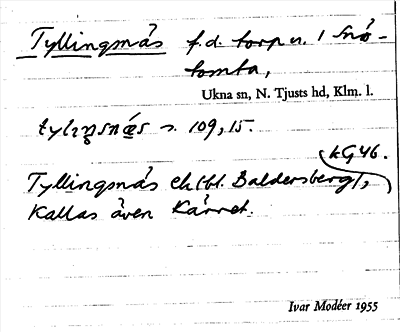 Tyllingsnäs f.d. torp u. 1 Snö-
tomta,
Ukna sn, N. Tjusts hd, Klm. l.
s. 109, 15.
kG46.
Tyllingsnäs ek (bl. Baldersberg),
Kallas även Kärret.
Ivar Modéer 1955